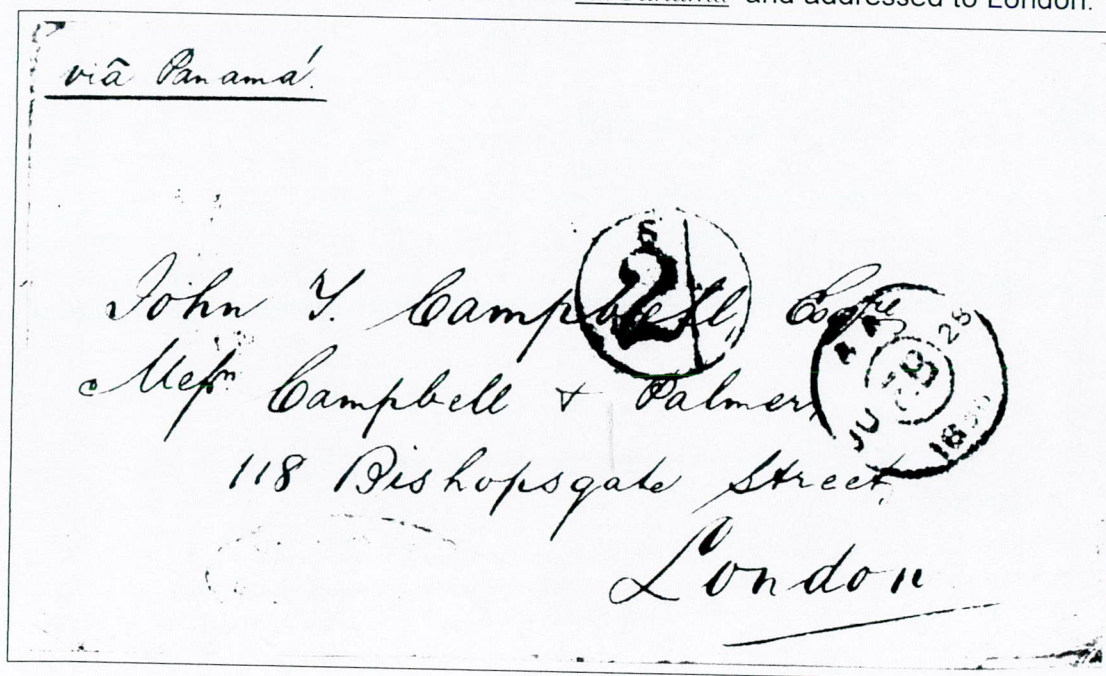 and addressed to London.
viã Panamá.
John Y. Campbell, Esqre
Messrs Campbell & Palmer,
118 Bishopsgate Street,
London
S
2
AA
JU 28
18